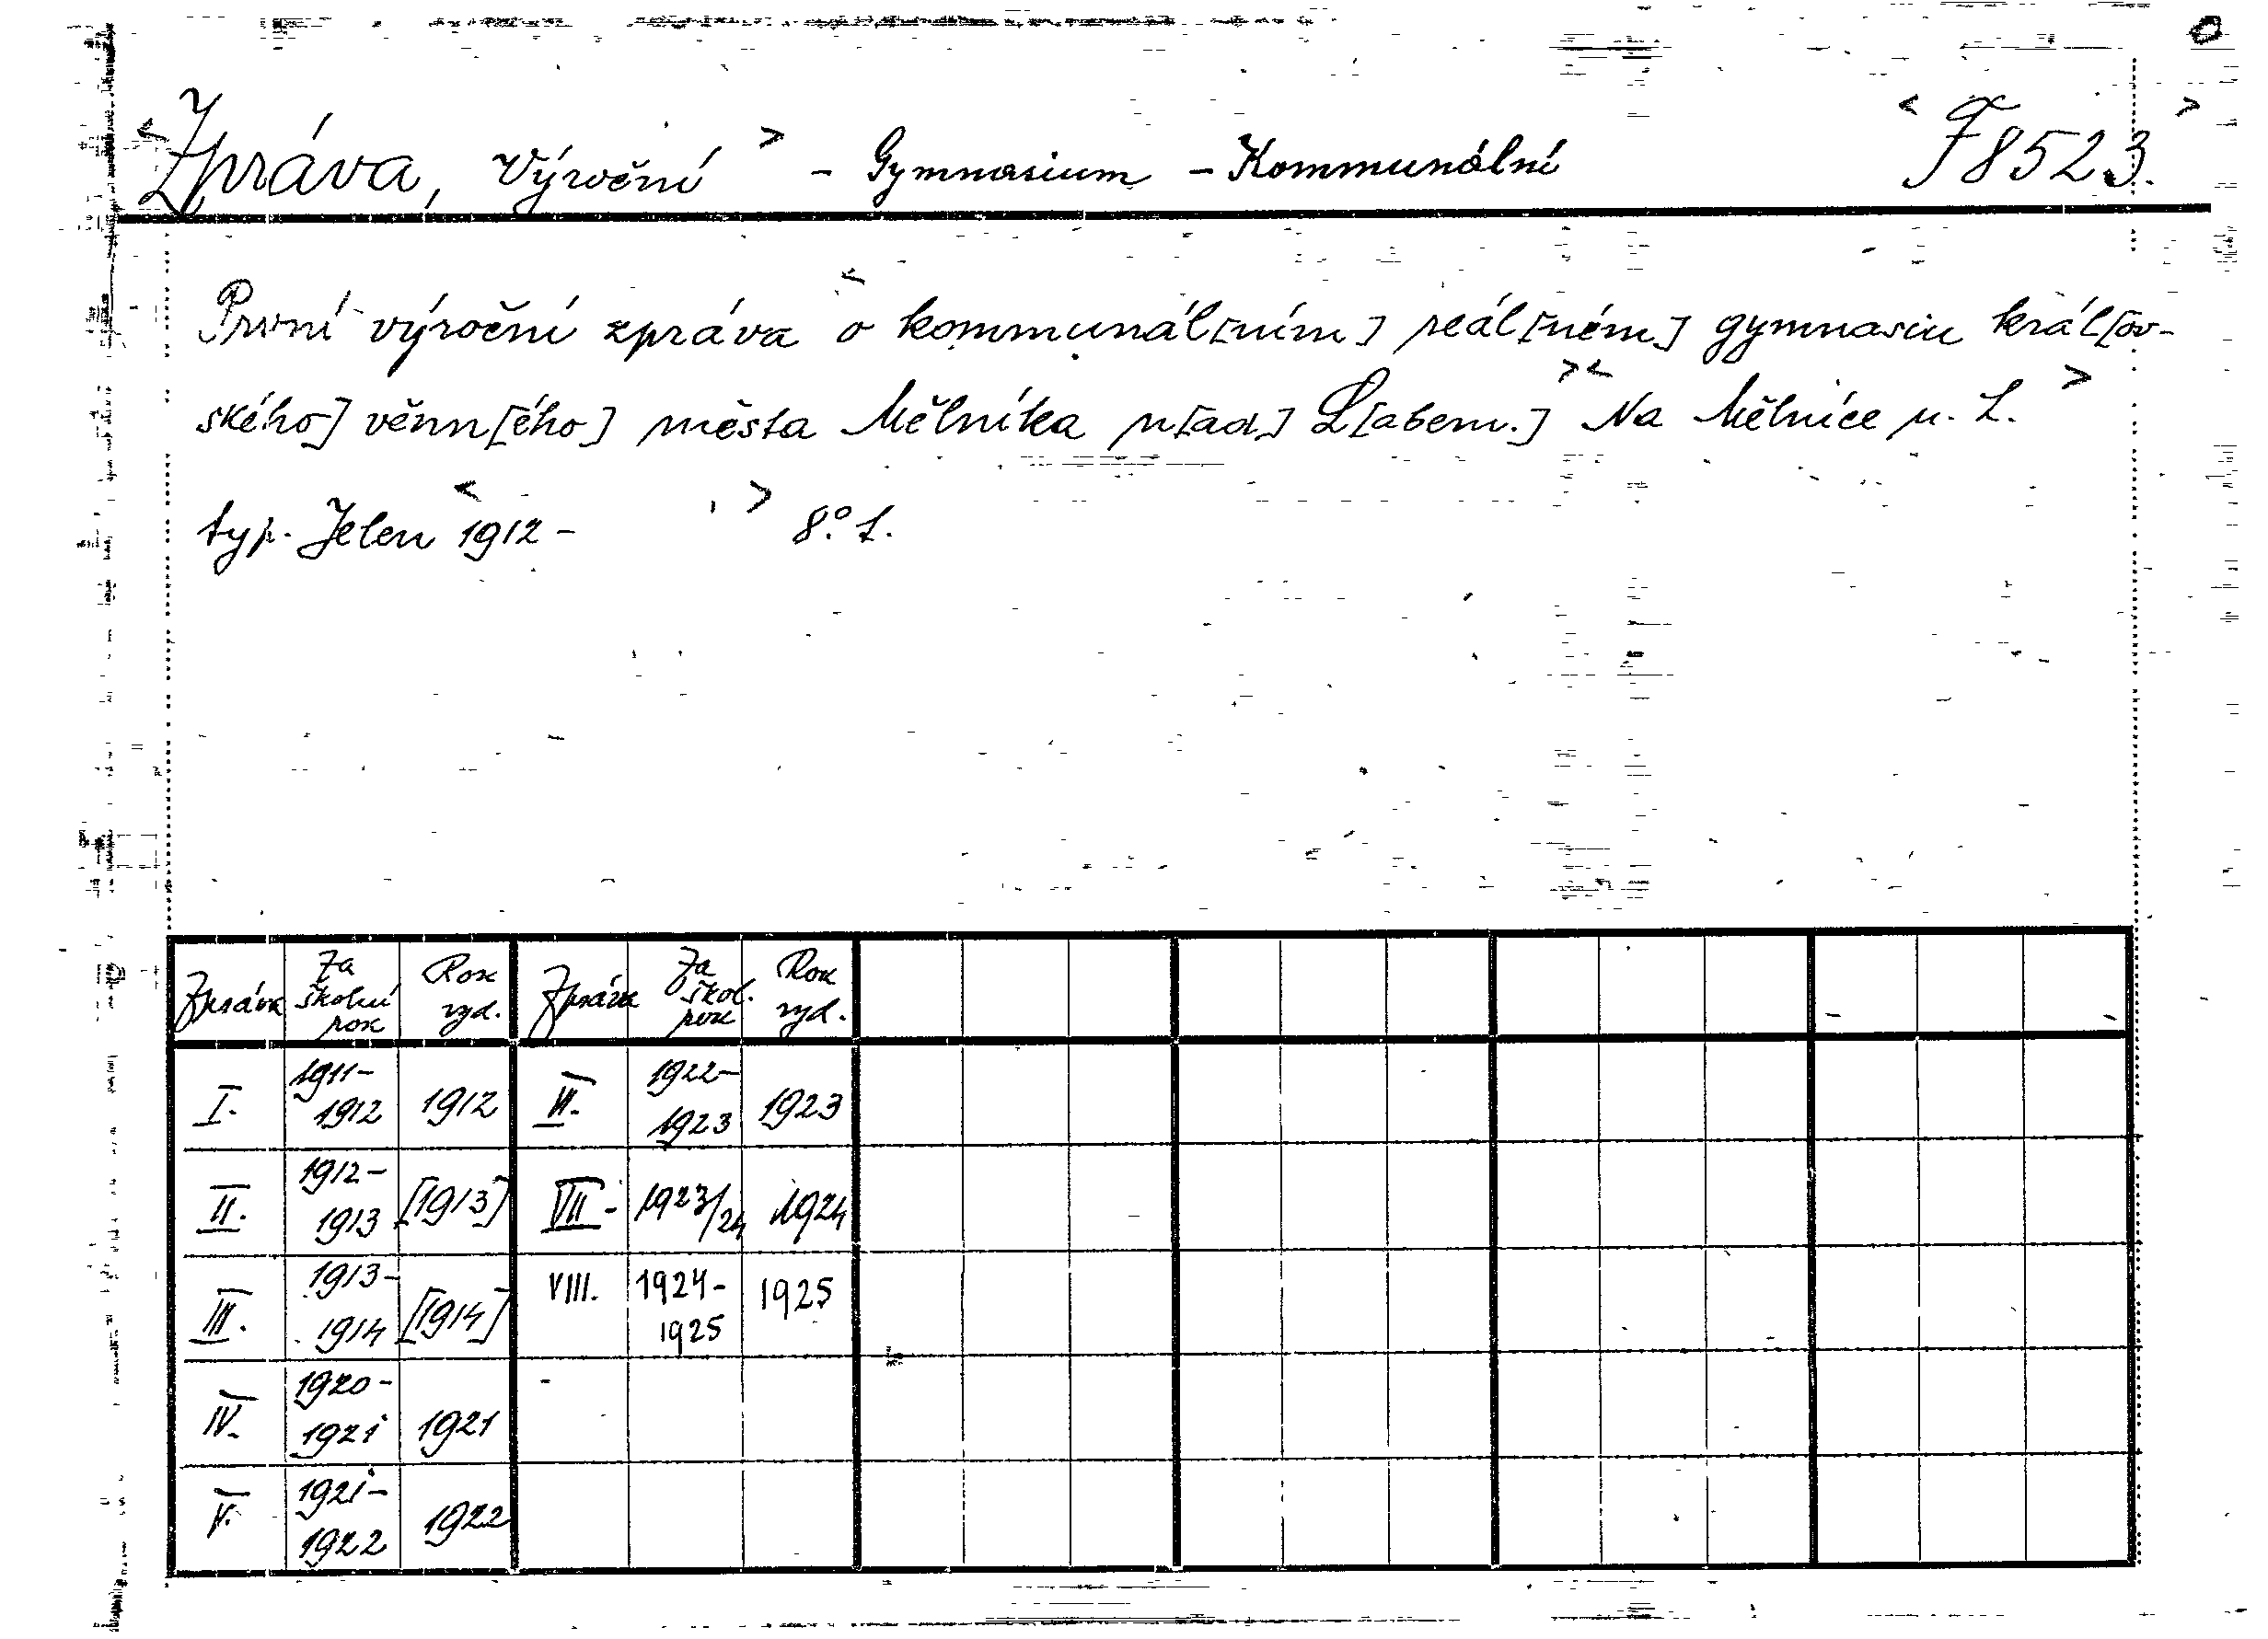 <Zpráva, Výroční> - Gymnasium - Kommunální <F 8523.>
První výroční zpráva <o kommunál[ním] reál[ném] gymnasiu král[ov-
ského] věnn[ého] města Mělníka n[ad] L[abem.]>< Na Mělníce n. L.>
typ. Jelen <1912- > 8.° L.
Zpráva Za školní rok Rok vyd. Zpráva Za škol. rok Rok vyd.
I. 1911-1912 1912 VI. 1922-1923 1923
II. 1912-1913 [1913] VII. 1923/24 1924
III. 1913-1914 [1914] VIII. 1924-1925 1925
IV. 1920-1921 1921
V. 1921-1922 1922